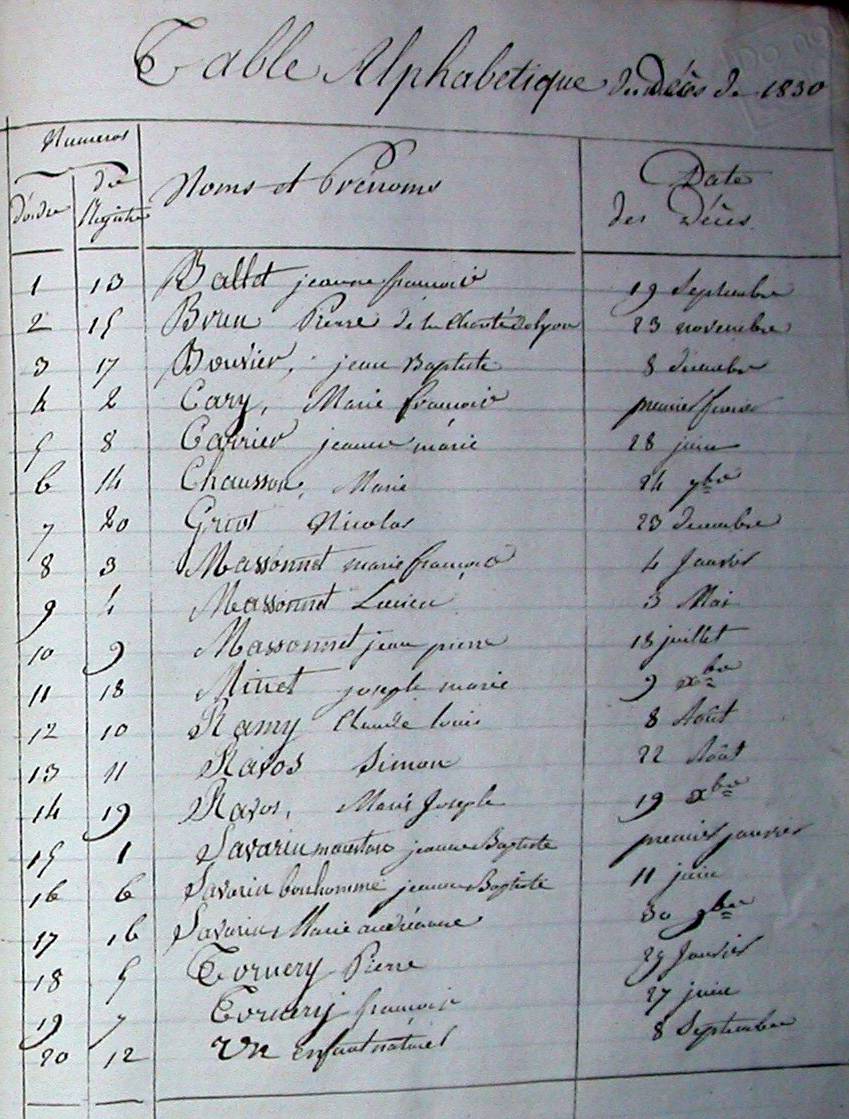 Table Alphabetique des Décès de 1830
Numeros
d'ordre
du Registre
Noms et Prénoms
Date des Décès
1 13 Ballet jeanne francoise 19 Septembre
2 15 Brun Pierre de la Charité de lyon 23 novembre
3 17 Bouvier, jean Baptiste 8 decembre
4 2 Cary, Marie francoise premier fevrier
5 8 Carrier jeanne marie 28 juin
6 14 Chausson, Marie 24 7bre
7 20 Griot Nicolas 23 decembre
8 3 Massonnet marie francoise 4 Janvier
9 4 Massonnet Lucien 3 Mai
10 9 Massonnet jean pierre 18 juillet
11 18 Minet joseph marie 9 xbre
12 10 Ramy Claude louis 8 Août
13 11 Ravos Simon 22 Août
14 19 Ravos, Marie Joseph 19 xbre
15 1 Savarin jeanne Baptiste premier janvier
16 6 Savarin bonhomme jeanne Baptiste 11 juin
17 16 Savarin Marie andréanne 30 9bre
18 5 Tornery Pierre 29 Janvier
19 7 Tornery francois 27 juin
20 12 Un enfant naturel 8 Septembre